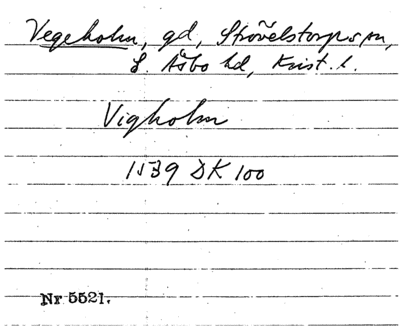 Vegeholm, gd, Strövelstorps sn,
S. Åsbo hd, Krist. l.
Vigholm
1539 DK 100
Nr 5521.